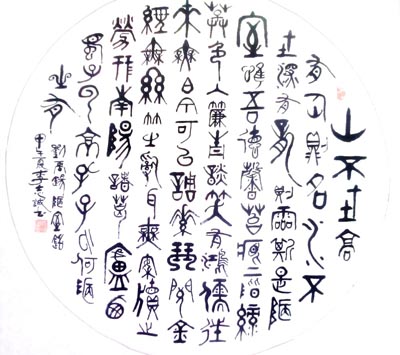 山不在高
有仙則名水不
在深有龍則靈斯是陋
室惟吾德馨苔痕上階綠
草色入簾青談笑有鴻儒往
來無白丁可以調素琴閱金
經無絲竹之亂耳無案牘之
勞形南陽諸葛廬西
蜀子雲亭孔子曰何陋
之有
劉禹錫陋室銘